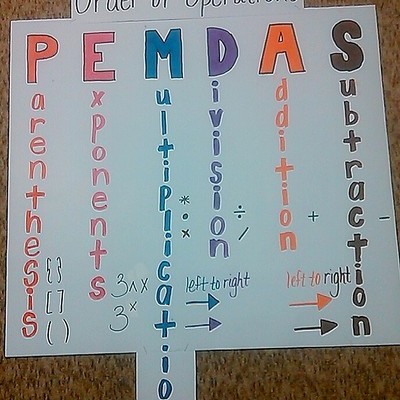 Order of Operations
PEMDAS
Parenthesis
{ }
[ ]
( )
Exponents
3^x
3ˣ
Multiplicatio
*
•
×
Division
÷
/
left to right
Addition
+
left to right
Subtraction
-